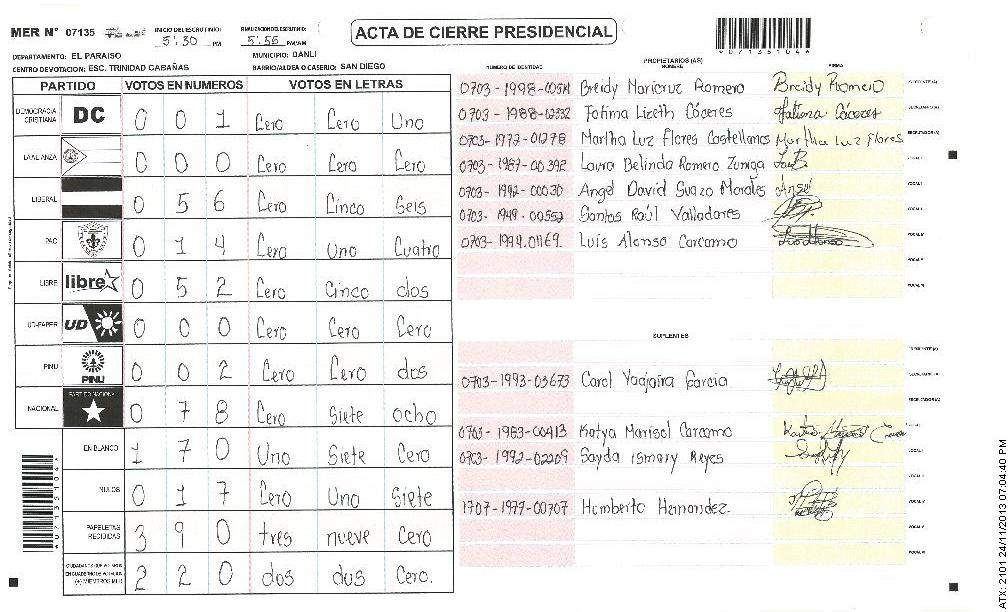 MER N° 07135
INICIO DEL ESCRUTINIO: 5:30 PM
FINALIZACION DEL ESCRUTINIO: 5:56 PM/AM
ACTA DE CIERRE PRESIDENCIAL
DEPARTAMENTO: EL PARAISO
MUNICIPIO: DANLI
CENTRO DE VOTACION: ESC. TRINIDAD CABAÑAS
BARRIO/ALDEA O CASERIO: SAN DIEGO
PARTIDO VOTOS EN NUMEROS VOTOS EN LETRAS
DEMOCRACIA CRISTIANA DC 0 0 1 Cero Cero Uno
LA ALIANZA 0 0 0 Cero Cero Cero
LIBERAL 0 5 6 Cero Cinco Seis
PAC 0 1 4 Cero Uno Cuatro
LIBRE libre 0 5 2 Cero Cinco dos
UD-FAPER UD 0 0 0 Cero Cero Cero
PINU PINU 0 0 2 Cero Cero dos
NACIONAL PARTIDO NACIONAL 0 7 8 Cero Siete ocho
EN BLANCO 1 7 0 Uno Siete Cero
NULOS 0 1 7 Cero Uno Siete
PAPELETAS RECIBIDAS 3 9 0 tres nueve Cero
CIUDADANOS QUE VOTARON EN CUADERNO DE VOTACION (+) MIEMBROS MER 2 2 0 dos dos Cero.
PROPIETARIOS (AS)
NUMERO DE IDENTIDAD NOMBRE FIRMA
0703-1998- Breidy Maricruz Romero Breidy Romero
0703-1988-02332 Fatima Lizeth Cáceres Fatima Cáceres
0703-1972-01278 Martha Luz Flores Castellanos Martha Luz Flores
0703-1987-00392 Laura Belinda Romero Zuniga
0703-1992-00030 Angel David Suazo Morales Angel
0703-1949-00552 Santos Raúl Valladares
0703-1994-01169. Luis Alonso Carcamo
SUPLENTES
0703-1993-03673 Carol Yaojaira Garcia
0703-1983-00413 Katya Marisol Carcamo
0703-1992-02209 Sayda Ismary Reyes
1707-1977-00707 Humberto Hernandez.
ATX: 2101 24/11/2013 07:04:40 PM